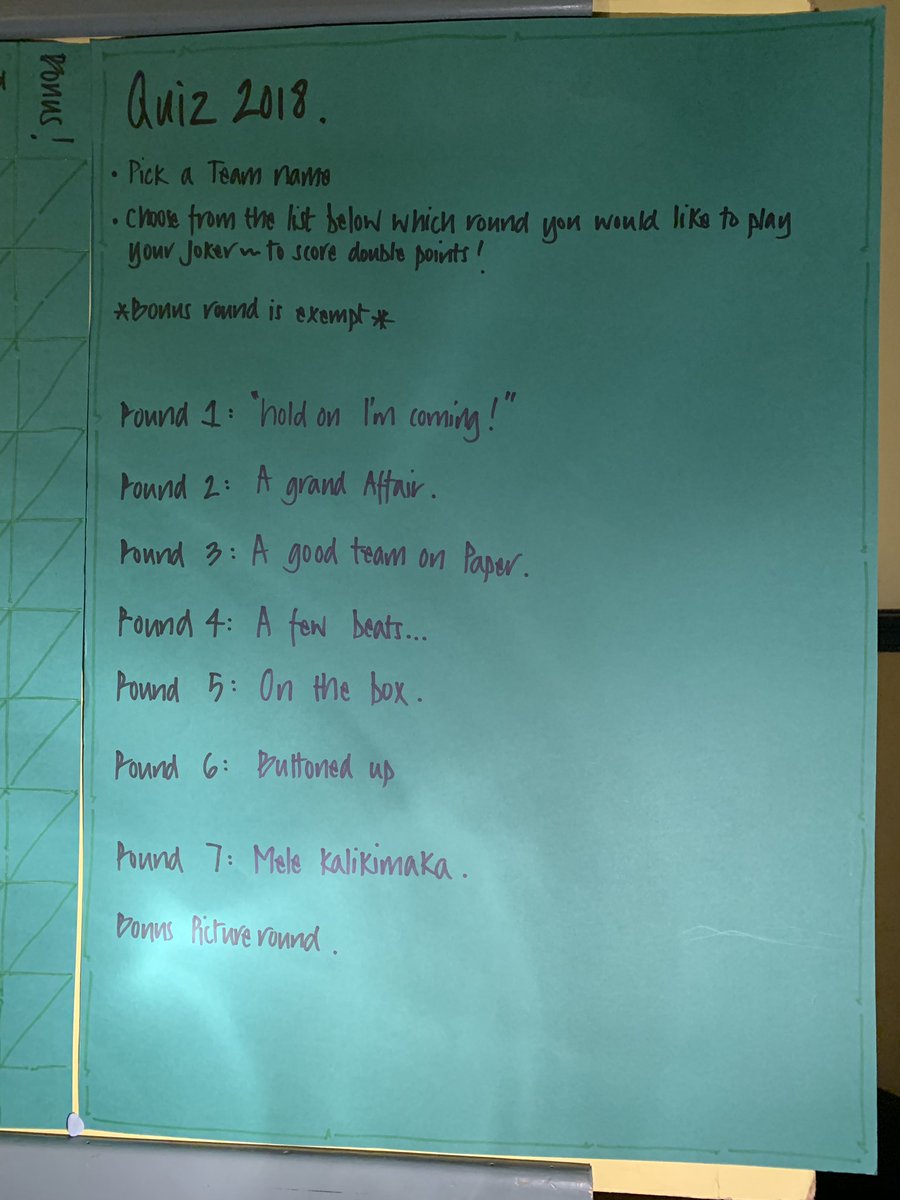 Bonus!
Quiz 2018.
• Pick a Team name
• Choose from the list below which round you would like to play
your Joker ~ to score double points!
*Bonus round is exempt*
Round 1: "hold on I'm coming!"
Round 2: A grand Affair.
Round 3: A good team on Paper.
Round 4: A few beats...
Round 5: On the box.
Round 6: Buttoned up
Round 7: Mele Kalikimaka.
Bonus Picture round.